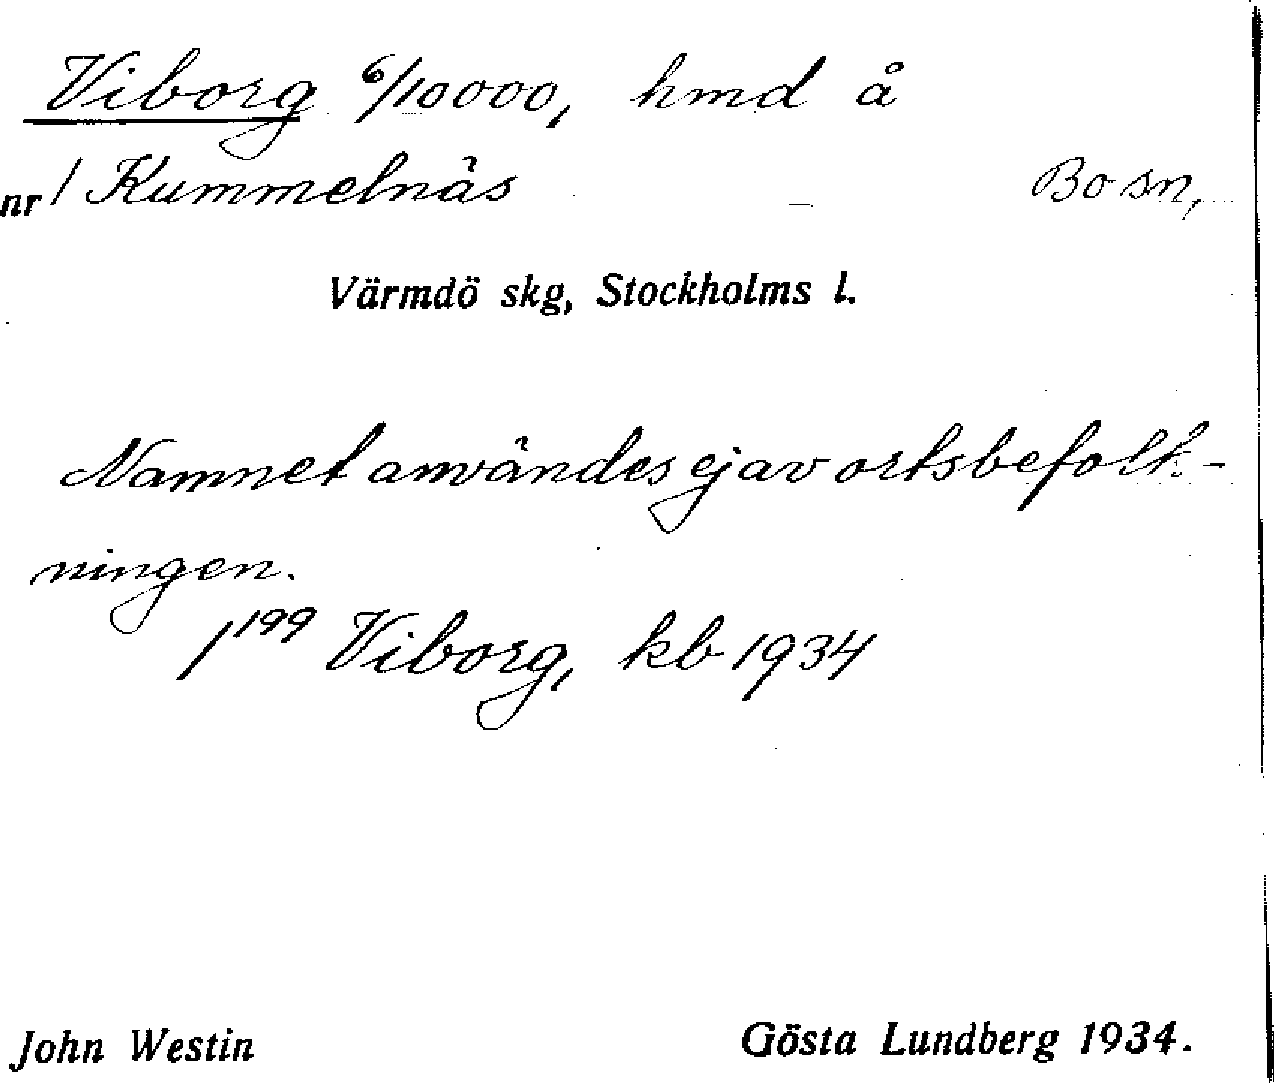 Viborg 6/10000, hmd å
nr 1 Kummelnäs Bo sn,
Värmdö skg, Stockholms l.
Namnet användes ej av ortsbefolk-
ningen.
1¹⁹⁹ Viborg, kb 1934
John Westin Gösta Lundberg 1934.